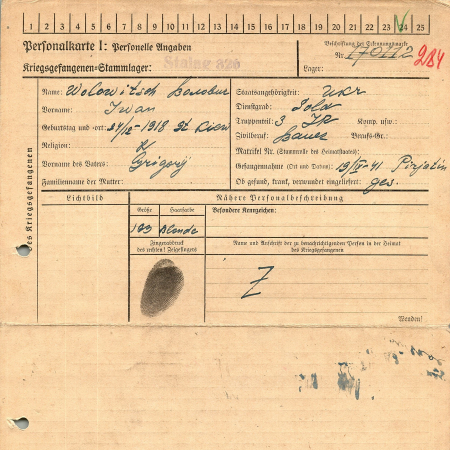 1 2 3 4 5 6 7 8 9 10 11 12 13 14 15 16 17 18 19 20 21 22 23 24 25
Personalkarte I: Personelle Angaben
Kriegsgefangenen-Stammlager: Stalag 326
Beschriftung der Erkennungsmarke
Nr. 170112
284
Lager:
des Kriegsgefangenen
Name: Wolowitsch
Vorname: Iwan
Geburtstag und -ort: 24/12 1918 St Kiew
Religion:
Vorname des Vaters: Grigorij
Familienname der Mutter:
Staatsangehörigkeit: UKR
Dienstgrad: Sold
Truppenteil: 3 JR Komp. usw.:
Zivilberuf: Bauer Berufs-Gr.:
Matrikel Nr. (Stammrolle des Heimatstaates)
Gefangennahme (Ort und Datum): Pirjatin
Ob gesund, krank, verwundet eingeliefert: ges.
Lichtbild
Nähere Personalbeschreibung
Größe
Haarfarbe
Besondere Kennzeichen:
183
blonde
Fingerabdruck
des rechten! Zeigefingers
Name und Anschrift der zu benachrichtigenden Person in der Heimat
des Kriegsgefangenen
Z
Wenden!